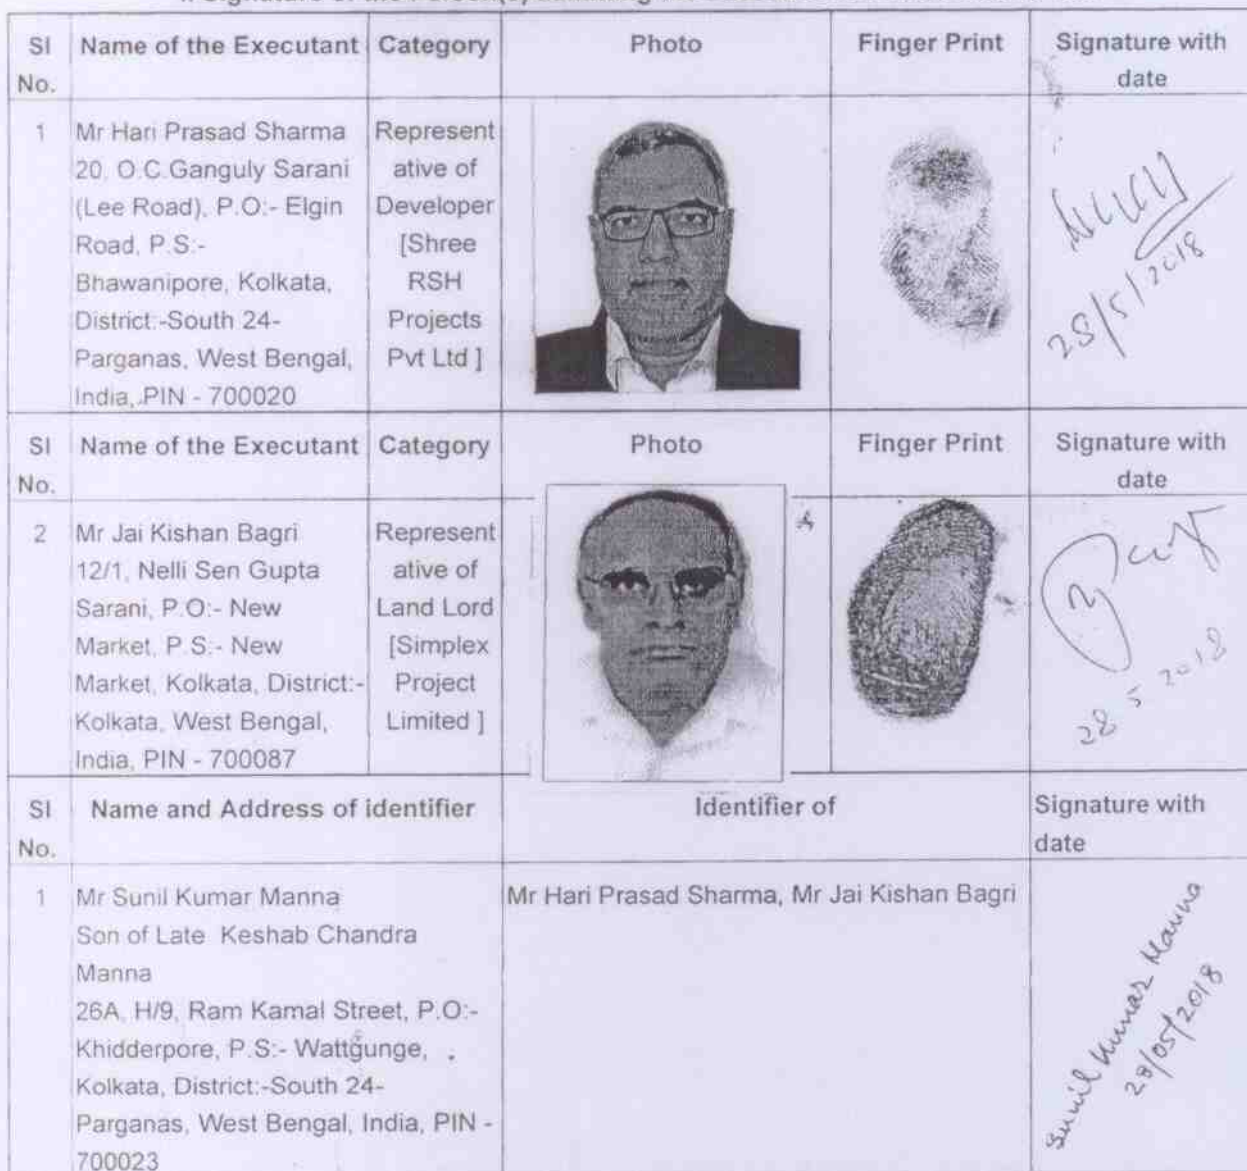 Sl Name of the Executant Category Photo Finger Print Signature with
No. date
1 Mr Hari Prasad Sharma
20, O.C.Ganguly Sarani
(Lee Road), P.O:- Elgin
Road, P.S:-
Bhawanipore, Kolkata,
District:-South 24-
Parganas, West Bengal,
India, PIN - 700020
Represent
ative of
Developer
[Shree
RSH
Projects
Pvt Ltd ]
28/5/2018
Sl Name of the Executant Category Photo Finger Print Signature with
No. date
2 Mr Jai Kishan Bagri
12/1, Nelli Sen Gupta
Sarani, P.O:- New
Market, P.S:- New
Market, Kolkata, District:-
Kolkata, West Bengal,
India, PIN - 700087
Represent
ative of
Land Lord
[Simplex
Project
Limited ]
28 5 2018
Sl Name and Address of identifier Identifier of Signature with
No. date
1 Mr Sunil Kumar Manna
Son of Late Keshab Chandra
Manna
26A, H/9, Ram Kamal Street, P.O:-
Khidderpore, P.S:- Wattgunge,
Kolkata, District:-South 24-
Parganas, West Bengal, India, PIN -
700023
Mr Hari Prasad Sharma, Mr Jai Kishan Bagri
Sunil Kumar Manna
28/05/2018